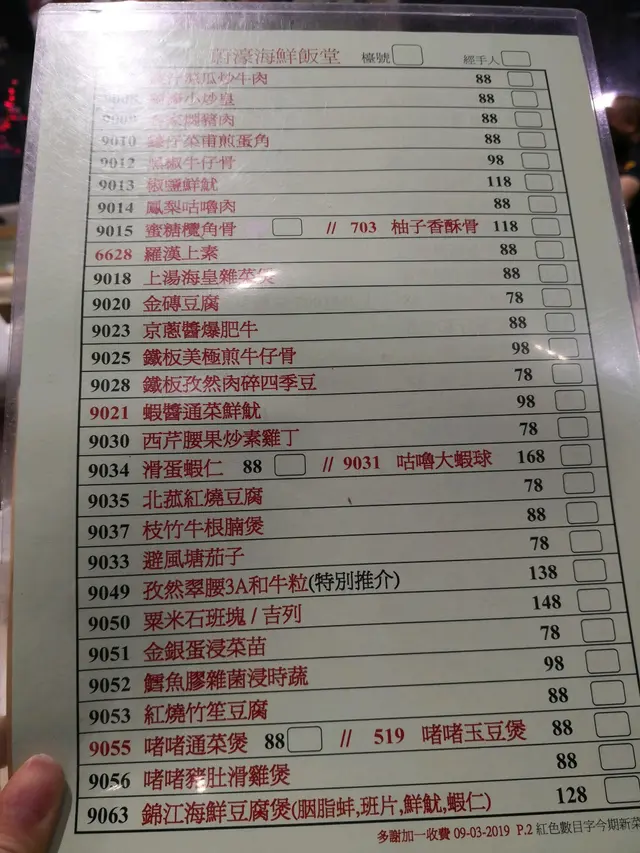 海鮮飯堂 檯號 經手人
瓜炒牛肉 88
小炒皇 88
豬肉 88
9010 菜甫煎蛋角 88
9012 黑椒牛仔骨 98
9013 椒鹽鮮魷 118
9014 鳳梨咕嚕肉 88
9015 蜜糖欖角骨 // 703 柚子香酥骨 118
6628 羅漢上素 88
9018 上湯海皇雜菜煲 88
9020 金磚豆腐 78
9023 京蔥醬爆肥牛 88
9025 鐵板美極煎牛仔骨 98
9028 鐵板孜然肉碎四季豆 78
9021 蝦醬通菜鮮魷 98
9030 西芹腰果炒素雞丁 78
9034 滑蛋蝦仁 88 // 9031 咕嚕大蝦球 168
9035 北菰紅燒豆腐 78
9037 枝竹牛根腩煲 88
9033 避風塘茄子 78
9049 孜然翠腰3A和牛粒(特別推介) 138
9050 粟米石班塊 / 吉列 148
9051 金銀蛋浸菜苗 78
9052 鱈魚膠雜菌浸時蔬 98
9053 紅燒竹笙豆腐 88
9055 啫啫通菜煲 88 // 519 啫啫玉豆煲 88
9056 啫啫豬肚滑雞煲 88
9063 錦江海鮮豆腐煲(胭脂蚌,班片,鮮魷,蝦仁) 128
多謝加一收費 09-03-2019 P.2 紅色數目字今期新菜